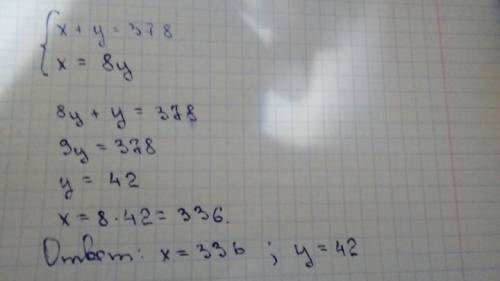 x + y = 378
x = 8y
8y + y = 378
9y = 378
y = 42
x = 8 · 42 = 336.
Ответ: x = 336 ; y = 42